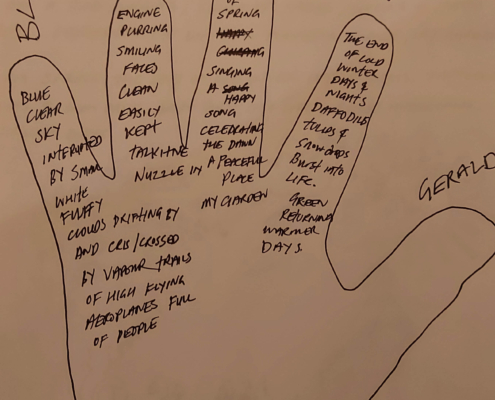 BL
BLUE
CLEAR
SKY
INTERUPTED
BY SMALL
WHITE
FLUFFY
CLOUDS DRIFTING BY
AND CRIS/CROSSED
BY VAPOUR TRAILS
OF HIGH FLYING
AEROPLANES FULL
OF PEOPLE
ENGINE
PURRING
SMILING
FACES
CLEAN
EASILY
KEPT
TALKITNE
NUZZLE IN
OF
SPRING
HAPPY
SINGING
A SONG
HAPPY
SONG
CELEBRATING
THE DAWN
A PEACEFUL
PLACE
MY GARDEN
THE END
OF COLD
WINTER
DAYS &
NIGHTS
DAFFODILS
TULIPS &
SNOWDROPS
BURST INTO
LIFE.
GREEN
RETURNING
WARMER
DAYS
GERALD